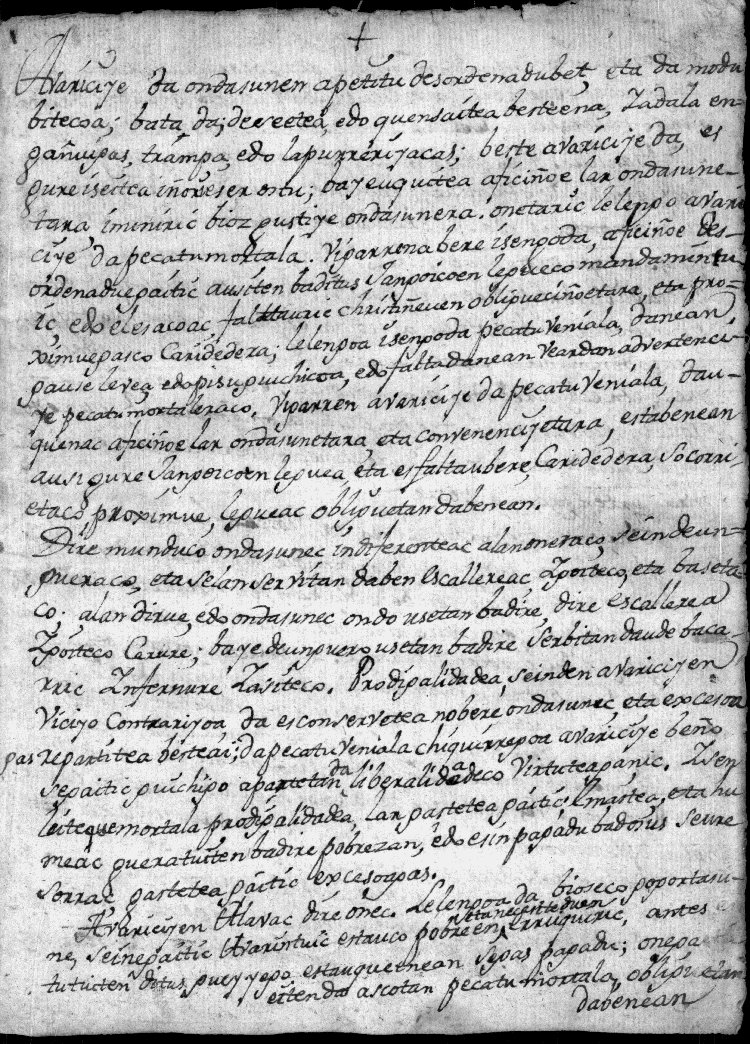 +
Avariciye da ondasunen apetitu desordenadubet, eta da modu
bitecoa; bata, da, deseetea, edo quensaitea besteena, Zadala en-
gañugas, trampa, edo lapurreriyacas; beste avariciye da, es
gure iseitea iñori eser ostu; baye euquitea aficiñoe lar ondasune-
tara iminiric bioz gustiye ondasunera. onetaric lelengo avari
ciye, da pecatu mortala. Vigarrena bere isengoda, aficiñoe des-
ordenadue gaitic austen baditus Jangoicoen legeeco mandamentu
ic, edo elesacoac, faltauric christiñeuen obligueciñoetara, eta pro-
ximuegasco Caridedera; lelengoa isengoda pecatu veniala, danean
gause levea, edo pisu guichicoa, edo falta danean veardan advertenci
ye pecatu mortaleraco. Vigarren avariciye da pecatu veniala, dau-
quenac aficiñoe lar ondasunetara, eta convenenciyetara, estabenean
ausi gure Jangoicoen leguea, eta esfaltau bere, Caridedera, Socorri-
etaco proximue, legueac obliguetan dabenean.
Dire munduco ondasunec indiferenteac alan oneraco, sein deun-
gueraco, eta selan servitan daben escallereac Igoiteco, eta baseta
co; alan dirue, edo ondasunec ondo usetan badire, dire escallerea
Igoiteco Cerure; baye deunguero usetan badire serbitan daude baca-
rric Infernure Iasiteco. Prodigalidadea, seinden avariciyen
Viciyo Contrariyoa da esconservetea nobere ondasunec eta excesoa
gas repartitea besteai; da pecatu veniala chiquirregoa avariciye beño
segaitic guichigo apartetan da liberalidadeco virtuteaganic. Isen
leiteque mortala prodigalidadea, lar gastetea gaitic Emastea, eta hu
meac gueratuten badire pobrezan, edo esin pagadu badosus seure
sorrac gastetea gaitic excesoagas.
Avariciyen Alavac dire onec. Lelengoa da biozeco gogortasu-
ne, seinegaitic Avarintuic estauco pobreen eta necesiteduen erruquiric, antes
tutucten ditus, puyyego, estauqueenean segas pagadu; onega
eiten da ascotan pecatu mortala, obliguetan
dabenean